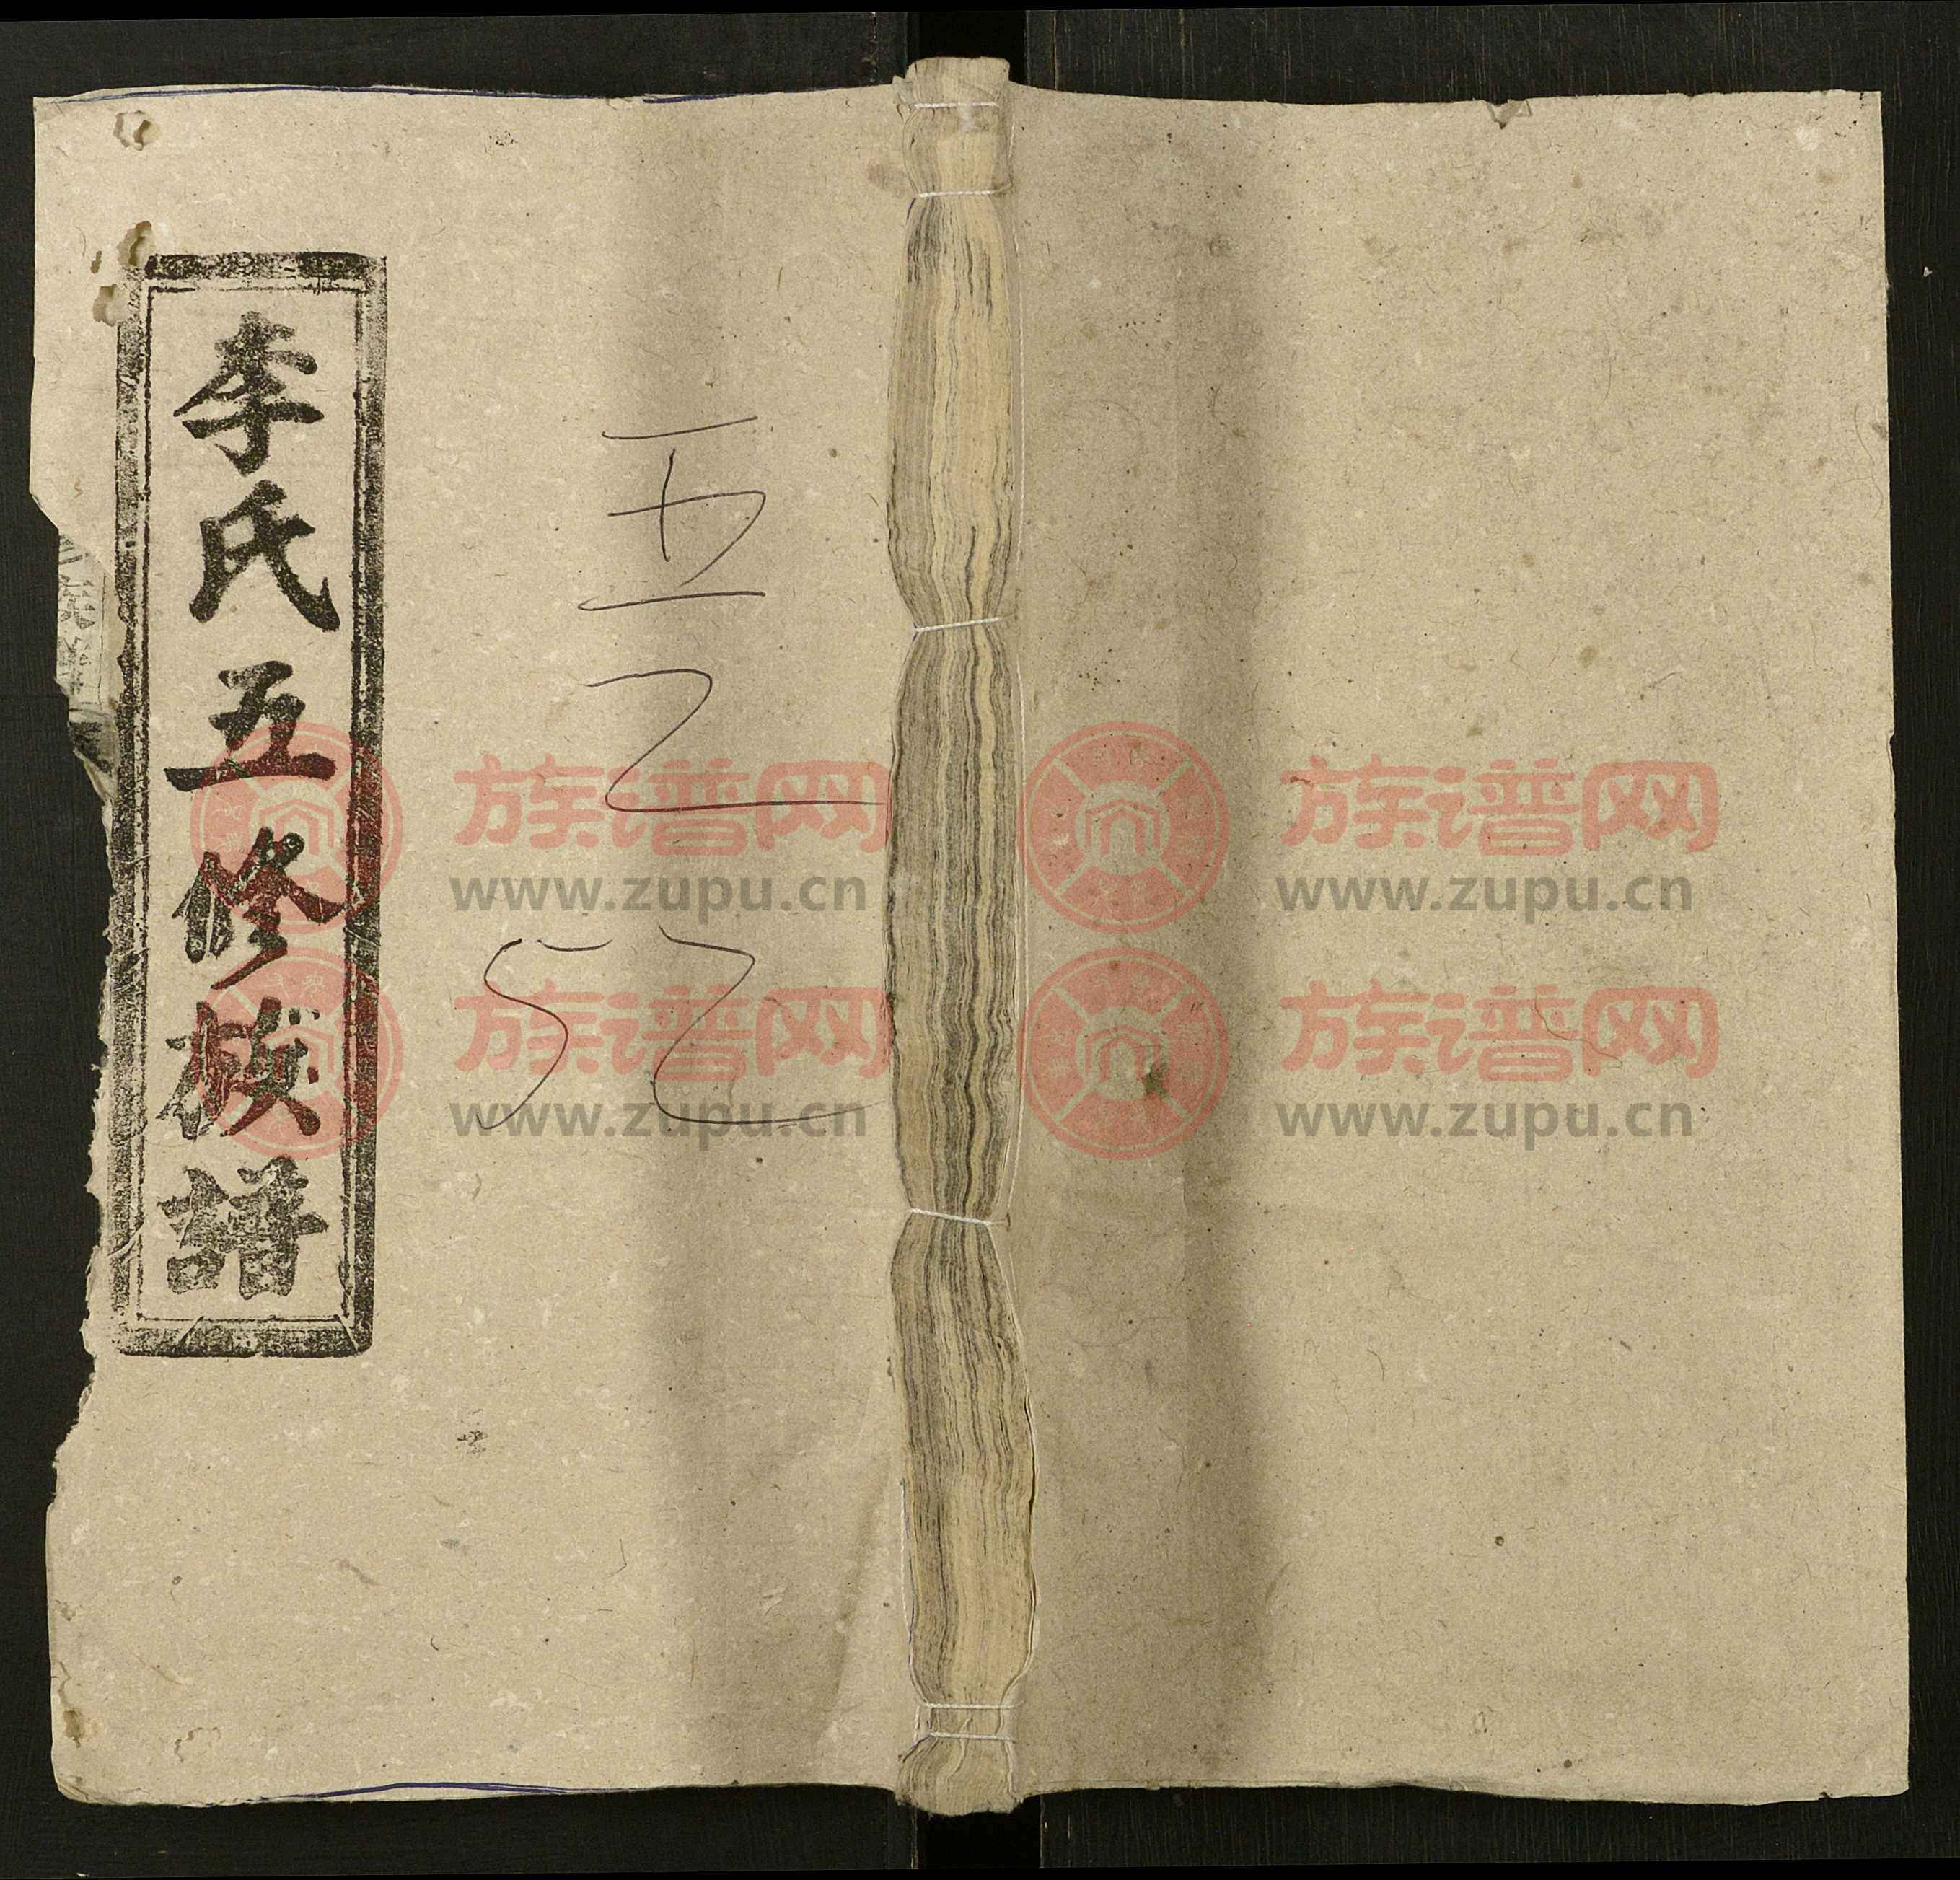 李氏五修族譜
五
2
52
族谱网
www.zupu.cn
族谱网
www.zupu.cn
族谱网
www.zupu.cn
族谱网
www.zupu.cn